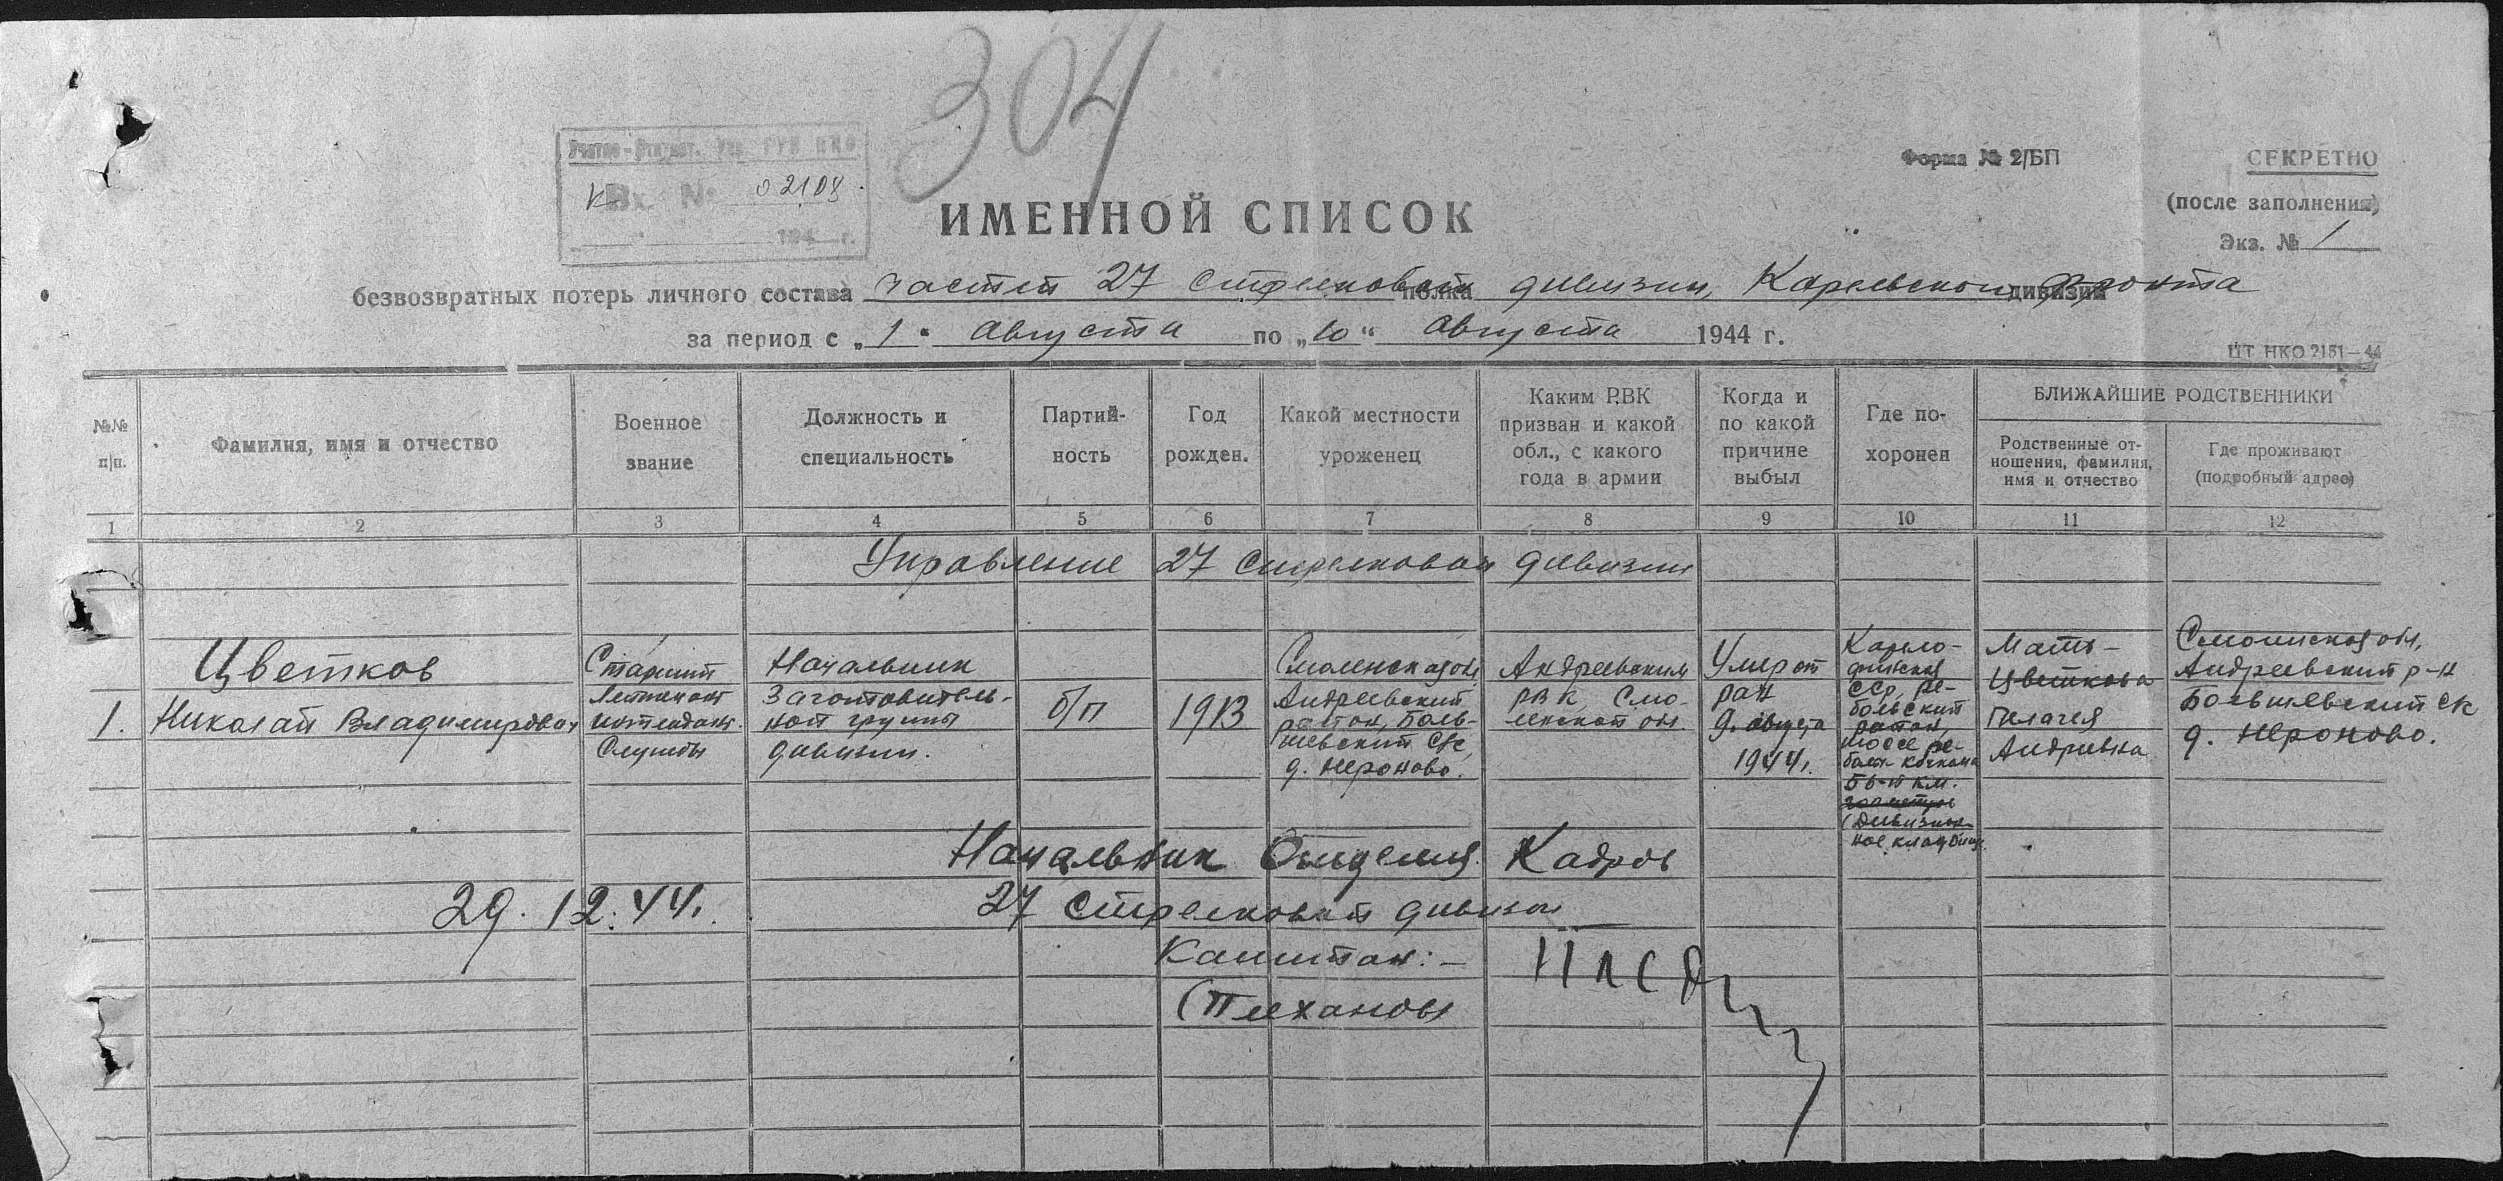 304
Вх № 02108
194 г.
Форма № 2/БП
СЕКРЕТНО
(после заполнения)
Экз. № 1
ИМЕННОЙ СПИСОК
безвозвратных потерь личного состава частей 27 стрелковой полка дивизии, Карельского дивизии фронта
за период с „1“ Августа по „10“ Августа 1944 г.
ЦТ НКО 2151—44
№№ п/п.
Фамилия, имя и отчество
Военное звание
Должность и специальность
Партийность
Год рожден.
Какой местности уроженец
Каким РВК призван и какой обл., с какого года в армии
Когда и по какой причине выбыл
Где похоронен
БЛИЖАЙШИЕ РОДСТВЕННИКИ
Родственные отношения, фамилия, имя и отчество
Где проживают (подробный адрес)
1 2 3 4 5 6 7 8 9 10 11 12
Управление 27 Стрелковой дивизии
1.
Цветков
Николай Владимирович
Старший
Лейтенант
интендант.
Службы
Начальник
Заготовитель-
ной группы
дивизии.
б/п
1913
Смоленская обл
Андреевский
район, Боль-
шевский С/с,
д. Нероново.
Андреевским
РВК, Смо-
ленской обл.
Умер от
ран
9. августа
1944 г.
Карело-
финская
ССР, Ре-
больский
район,
шоссе Ре-
болы-Кочкома
56-й км.
(Дивизион-
ное кладбище
Мать -
Цветкова
Пелагея
Андреевна
Смоленская обл,
Андреевский р-н
Большевский СК
д. Нероново.
Начальник Отделения Кадров
29.12.44г.
27 Стрелковой дивизии
Капитан: -
(Плеханов)